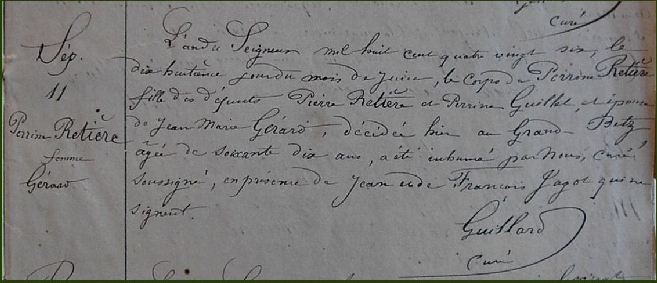 curé
Sép.
11
Perrine Retière
femme
Gérard
L'an du Seigneur mil huit cent quatre vingt six, le
dix huitième jour du mois de Juin, le corps de Perrine Retière
fille des défunts Pierre Retière et Perrine Guillet, et épouse
de Jean Marie Gérard, décédée hier au Grand Betz
âgée de soixante dix ans, a été inhumé par Nous, curé
soussigné, en présence de Jean et de François Jagot qui ne
signent.
Guillard
curé